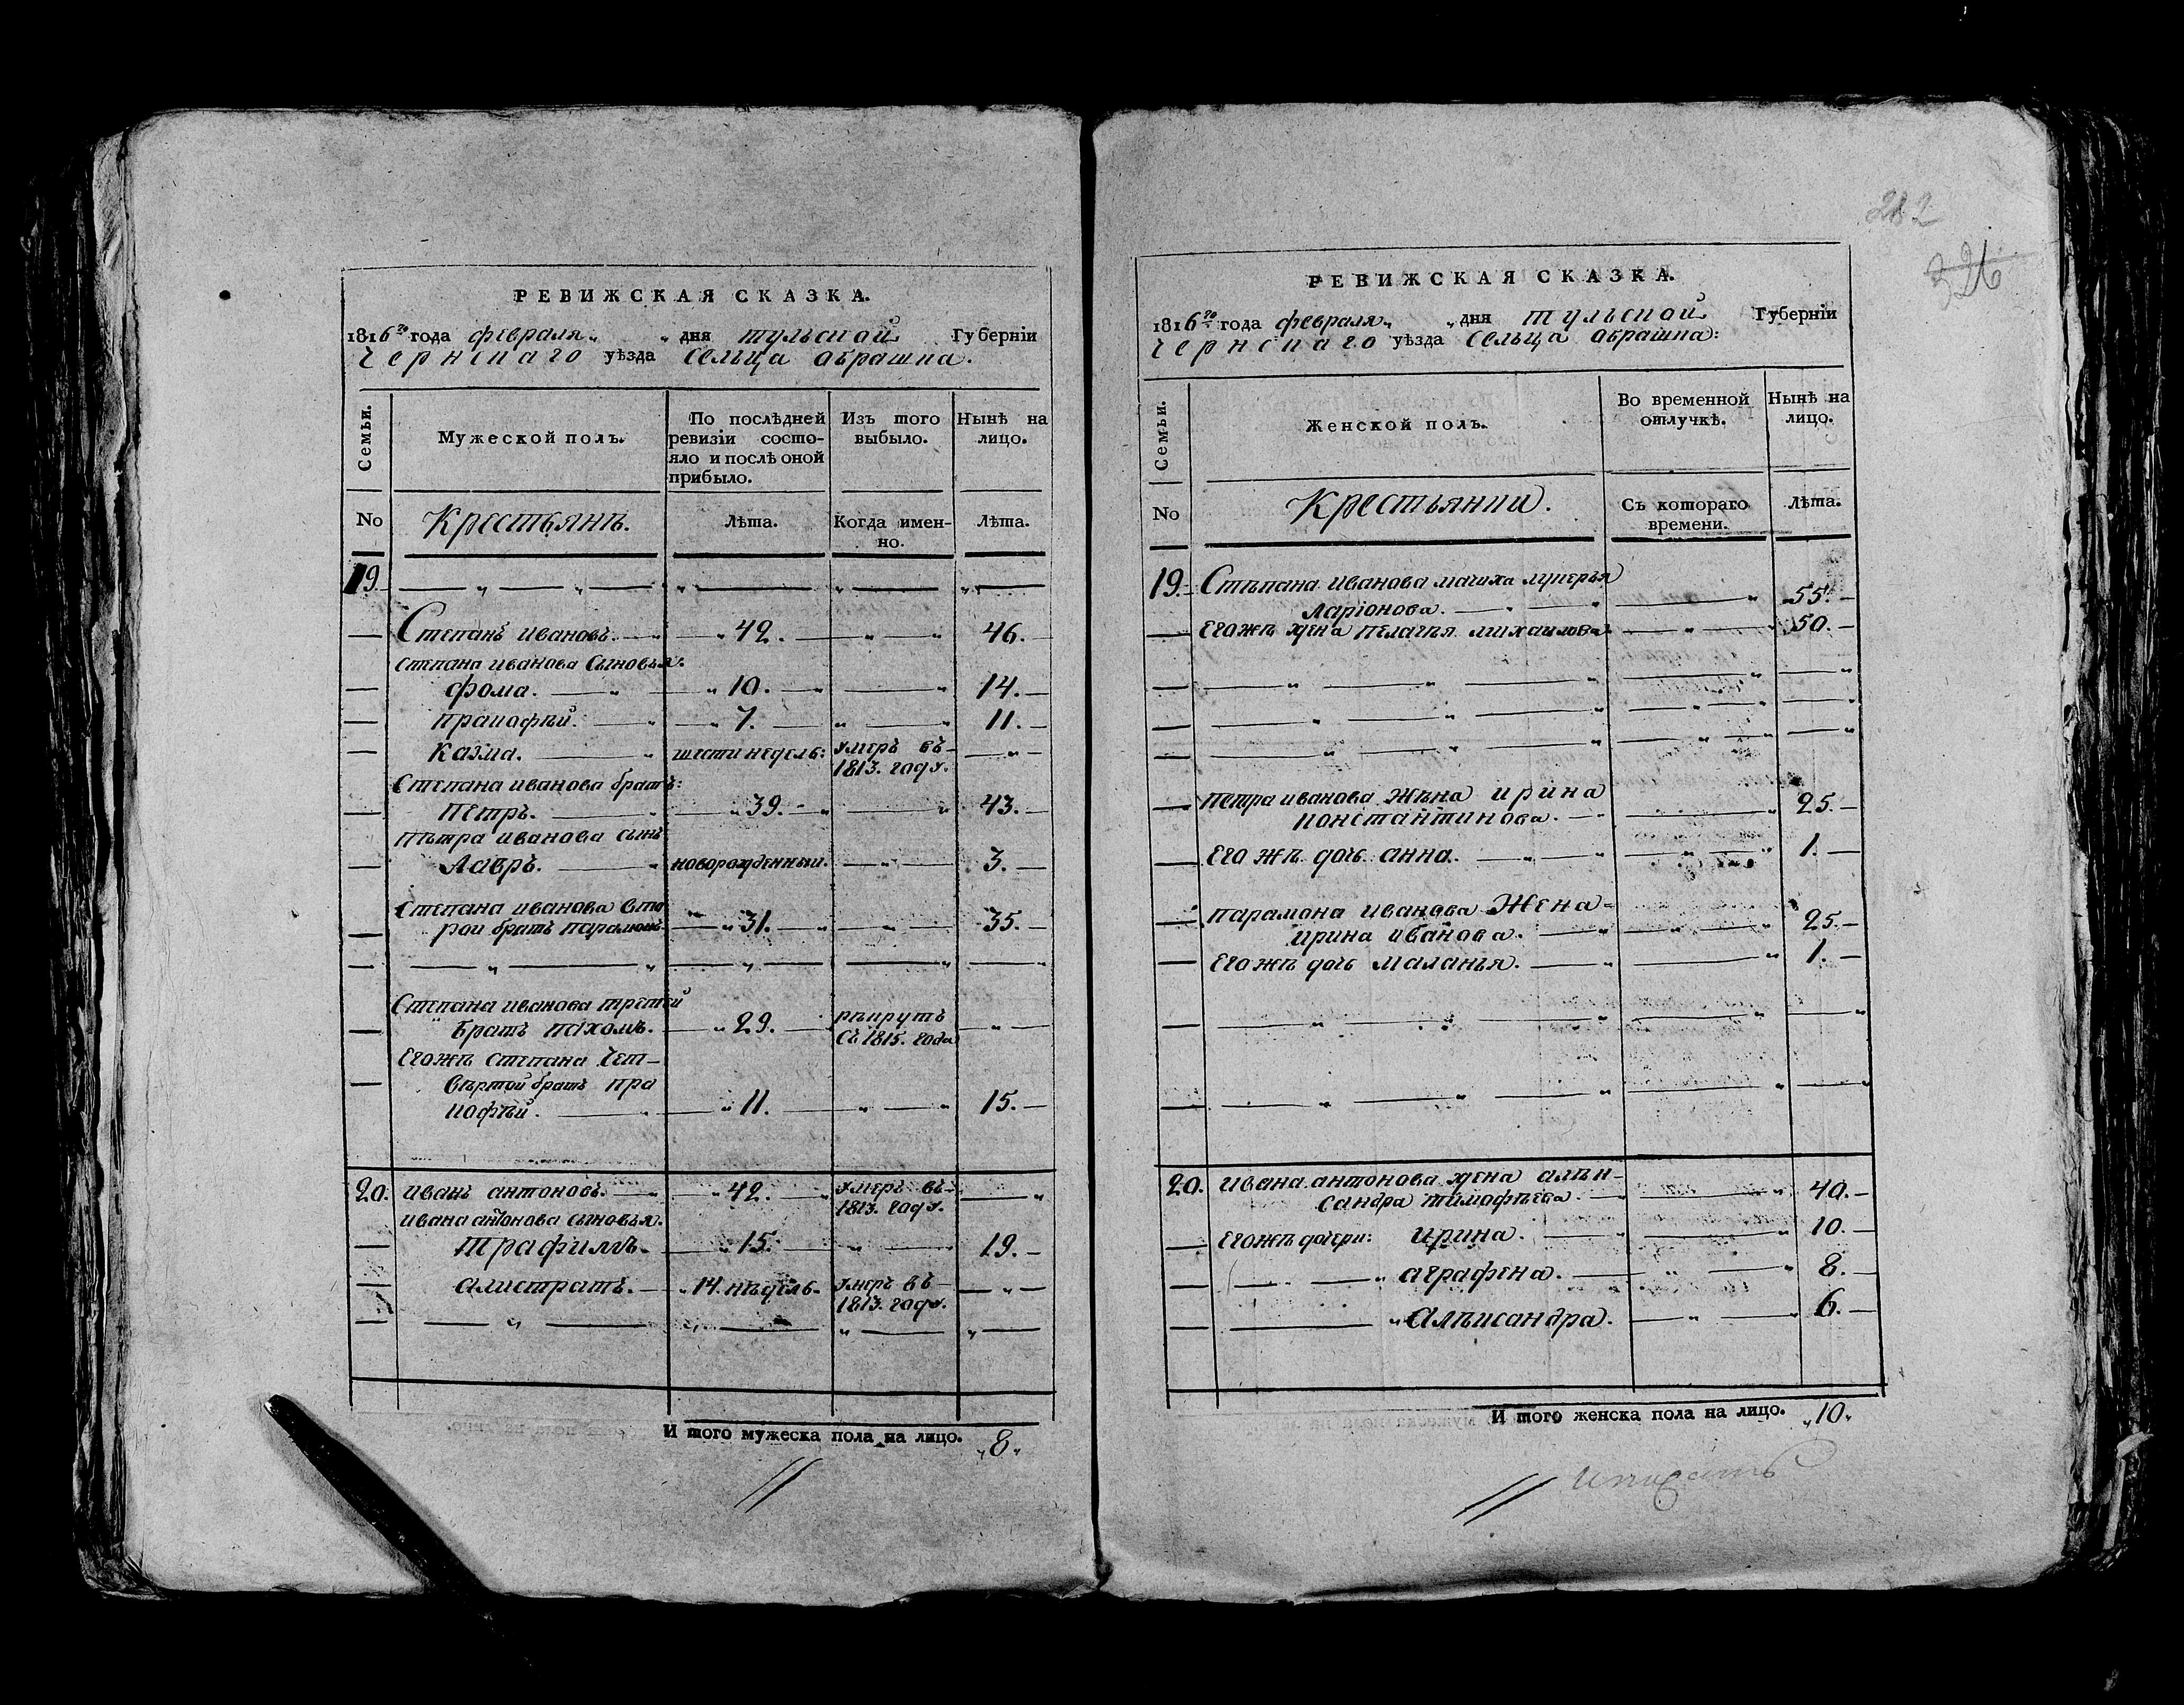 РЕВИЖСКАЯ СКАЗКА.
1816го года февраля „ „ дня тульской Губерніи
Чернскаго уѣзда сельца абрашка.
Семьи.
Мужеской полъ.
По послѣдней ревизіи состо-
яло и послѣ оной
прибыло.
Изъ того выбыло.
Нынѣ на лицо.
No
Крестьянѣ.
Лѣта.
Когда имен-
но.
Лѣта.
19.
Степанъ ивановъ. 42. 46.
степана иванова Сыновья.
фома. 10. 14.
пракофѣй. 7. 11.
Казма. шести недель: умеръ въ
1813. году.
Степана иванова братъ:
Петръ. 39. 43.
пѣтра иванова сынъ
Лавръ. новорожденный. 3.
Степана иванова вто
рой братъ парамонъ. 31. 35.
Степана иванова третей
братъ пахомъ. 29. рѣкрутъ
Съ 1815. года
Егожѣ степана чет-
вѣртой братъ пра
кофѣй. 11. 15.
20. иванъ антоновъ. 42. умеръ въ
1813. году.
ивана антонова сыновья.
трафимъ. 15. 19.
алистратъ. 14. нѣдель. умеръ въ
1813. году.
И того мужеска пола на лицо. „8„
282
326
РЕВИЖСКАЯ СКАЗКА.
1816го года февраля „ „ дня тульской Губерніи
Чернскаго уѣзда сельца абрашка:
Семьи.
Женской полъ.
Во временной
отлучкѣ.
Нынѣ на
лицо.
No
Крестьянки.
Съ котораго
времени.
Лѣта.
19. Стѣпана иванова мачиха лукерья
Ларіонова. 55.
Егожѣ жена пелагѣя михаилова. 50.
пѣтра иванова жѣна ирина
константинова. 25.
Его жѣ дочь анна. 1.
парамона иванова Жена
ирина иванова. 25.
Егожѣ дочь маланья. 1.
20. ивана антонова жена алѣк-
сандра тимофѣева 40.
Егожѣ дочери: ирина. 10.
аграфена. 8.
Алѣксандра. 6.
И того женска пола на лицо. „10„